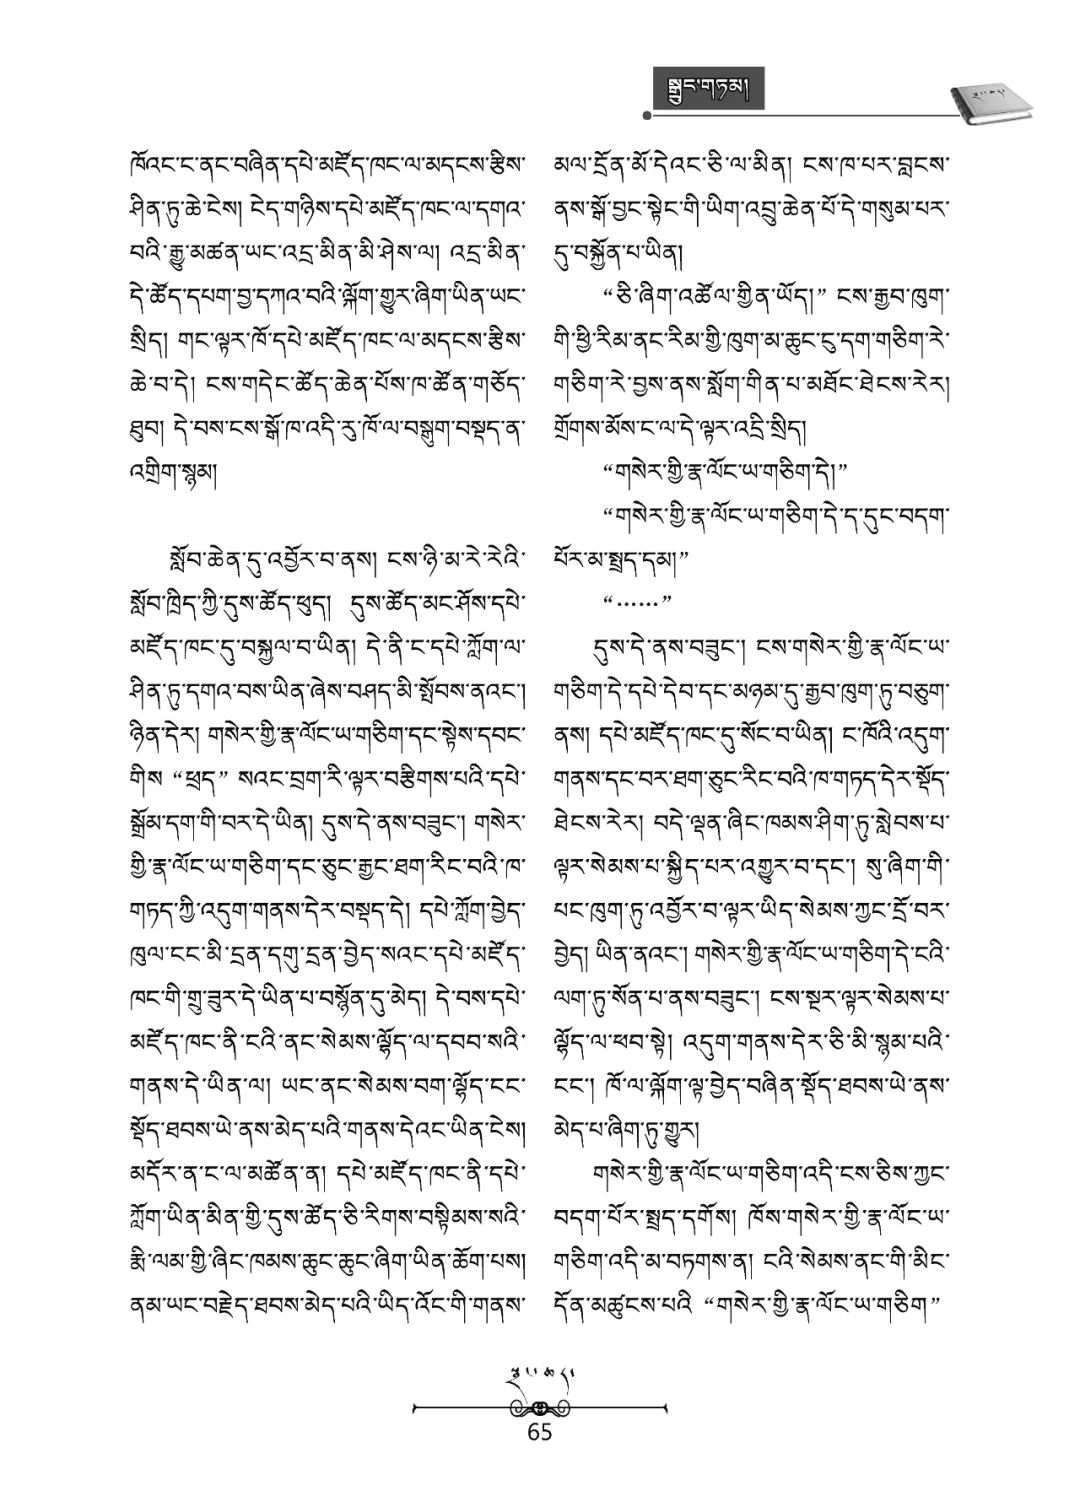 སྒྲུང་གཏམ།
ཁོའང་ང་ནང་བཞིན་དཔེ་མཛོད་ཁང་ལ་མདངས་རྩིས་
ཤིན་ཏུ་ཆེ་ངེས། ངེད་གཉིས་དཔེ་མཛོད་ཁང་ལ་དགའ་
བའི་རྒྱུ་མཚན་ཡང་འདྲ་མིན་མི་ཤེས་ལ། འདྲ་མིན་
དེ་ཚོད་དཔག་བྱ་དཀའ་བའི་ལྐོག་གྱུར་ཞིག་ཡིན་ཡང་
སྲིད། གང་ལྟར་ཁོ་དཔེ་མཛོད་ཁང་ལ་མདངས་རྩིས་
ཆེ་བ་དེ། ངས་གདེང་ཚོད་ཆེན་པོས་ཁ་ཚོན་གཅོད་
ཐུབ། དེ་བས་ངས་སྒོ་ཁ་འདི་རུ་ཁོ་ལ་བསྒུག་བསྡད་ན་
འགྲིག་སྙམ།
སློབ་ཆེན་དུ་འབྱོར་བ་ནས། ངས་ཉི་མ་རེ་རེའི་
སློབ་ཁྲིད་ཀྱི་དུས་ཚོད་ཕུད། དུས་ཚོད་མང་ཤོས་དཔེ་
མཛོད་ཁང་དུ་བསྐྱལ་བ་ཡིན། དེ་ནི་ང་དཔེ་ཀློག་ལ་
ཤིན་ཏུ་དགའ་བས་ཡིན་ཞེས་བཤད་མི་སྤོབས་ནའང་།
ཉིན་དེར། གསེར་གྱི་རྣ་ལོང་ཡ་གཅིག་དང་སྟེས་དབང་
གིས “ཕྲད” སའང་བྲག་རི་ལྟར་བརྩིགས་པའི་དཔེ་
སྒྲོམ་དག་གི་བར་དེ་ཡིན། དུས་དེ་ནས་བཟུང་། གསེར་
གྱི་རྣ་ལོང་ཡ་གཅིག་དང་ཅུང་རྒྱང་ཐག་རིང་བའི་ཁ་
གཏད་ཀྱི་འདུག་གནས་དེར་བསྡད་དེ། དཔེ་ཀློག་བྱེད་
ཁུལ་ངང་མི་དྲན་དགུ་དྲན་བྱེད་སའང་དཔེ་མཛོད་
ཁང་གི་གྲུ་ཟུར་དེ་ཡིན་པ་བསྙོན་དུ་མེད། དེ་བས་དཔེ་
མཛོད་ཁང་ནི་ངའི་ནང་སེམས་ལྷོད་ལ་དབབ་སའི་
གནས་དེ་ཡིན་ལ། ཡང་ནང་སེམས་བག་ལྷོད་ངང་
སྡོད་ཐབས་ཡེ་ནས་མེད་པའི་གནས་དེའང་ཡིན་ངེས།
མདོར་ན་ང་ལ་མཚོན་ན། དཔེ་མཛོད་ཁང་ནི་དཔེ་
ཀློག་ཡིན་མིན་གྱི་དུས་ཚོད་ཅི་རིགས་བསྟིམས་སའི་
རྨི་ལམ་གྱི་ཞིང་ཁམས་ཆུང་ཆུང་ཞིག་ཡིན་ཆོག་པས།
ནམ་ཡང་བརྗེད་ཐབས་མེད་པའི་ཡིད་འོང་གི་གནས་
མལ་དྲོན་མོ་དེའང་ཅི་ལ་མིན། ངས་ཁ་པར་བླངས་
ནས་སྒོ་བྱང་སྟེང་གི་ཡིག་འབྲུ་ཆེན་པོ་དེ་གསུམ་པར་
དུ་བསྐྱོན་པ་ཡིན།
“ཅི་ཞིག་འཚོལ་གྱིན་ཡོད།” ངས་རྒྱབ་ཁུག་
གི་ཕྱི་རིམ་ནང་རིམ་གྱི་ཁུག་མ་ཆུང་ངུ་དག་གཅིག་རེ་
གཅིག་རེ་བྱས་ནས་སློག་གིན་པ་མཐོང་ཐེངས་རེར།
གྲོགས་མོས་ང་ལ་དེ་ལྟར་འདྲི་སྲིད།
“གསེར་གྱི་རྣ་ལོང་ཡ་གཅིག་དེ།”
“གསེར་གྱི་རྣ་ལོང་ཡ་གཅིག་དེ་ད་དུང་བདག་
པོར་མ་སྤྲད་དམ།”
“……”
དུས་དེ་ནས་བཟུང་། ངས་གསེར་གྱི་རྣ་ལོང་ཡ་
གཅིག་དེ་དཔེ་དེབ་དང་མཉམ་དུ་རྒྱབ་ཁུག་ཏུ་བཅུག་
ནས། དཔེ་མཛོད་ཁང་དུ་སོང་བ་ཡིན། ང་ཁོའི་འདུག་
གནས་དང་བར་ཐག་ཅུང་རིང་བའི་ཁ་གཏད་དེར་སྡོད་
ཐེངས་རེར། བདེ་ལྡན་ཞིང་ཁམས་ཤིག་ཏུ་སླེབས་པ་
ལྟར་སེམས་པ་སྐྱིད་པར་འགྱུར་བ་དང་། སུ་ཞིག་གི་
པང་ཁུག་ཏུ་འབྱོར་བ་ལྟར་ཡིད་སེམས་ཀྱང་དྲོ་བར་
བྱེད། ཡིན་ནའང་། གསེར་གྱི་རྣ་ལོང་ཡ་གཅིག་དེ་ངའི་
ལག་ཏུ་སོན་པ་ནས་བཟུང་། ངས་སྔར་ལྟར་སེམས་པ་
ལྷོད་ལ་ཕབ་སྟེ། འདུག་གནས་དེར་ཅི་མི་སྙམ་པའི་
ངང་། ཁོ་ལ་ལྐོག་ལྟ་བྱེད་བཞིན་སྡོད་ཐབས་ཡེ་ནས་
མེད་པ་ཞིག་ཏུ་གྱུར།
གསེར་གྱི་རྣ་ལོང་ཡ་གཅིག་འདི་ངས་ཅིས་ཀྱང་
བདག་པོར་སྤྲད་དགོས། ཁོས་གསེར་གྱི་རྣ་ལོང་ཡ་
གཅིག་འདི་མ་བཏགས་ན། ངའི་སེམས་ནང་གི་མིང་
དོན་མཚུངས་པའི “གསེར་གྱི་རྣ་ལོང་ཡ་གཅིག”
65